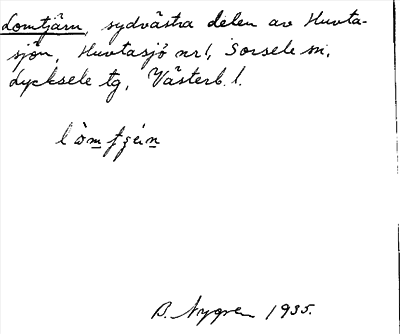 Lomtjärn, sydvästra delen av Huvta-
sjön, Huvtasjö nr 1, Sorsele sn,
Lycksele tg, Västerb. l.
B. Nygren 1935.